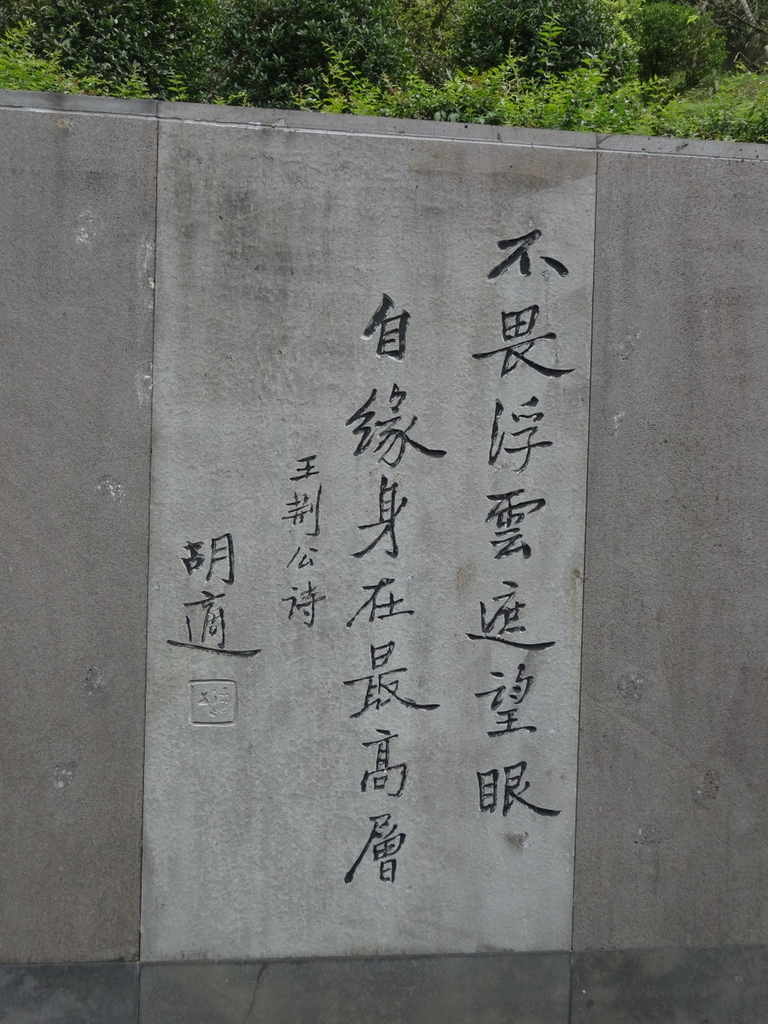 不畏浮雲遮望眼
自缘身在最高層
王荆公诗
胡適